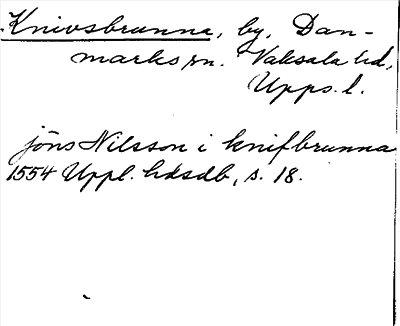 Knivsbrunna, by, Dan-
marks sn. Vaksala hd,
Upps. l.
jöns Nilsson i knifbrunna
1554 Uppl. hdsdb, s. 18.